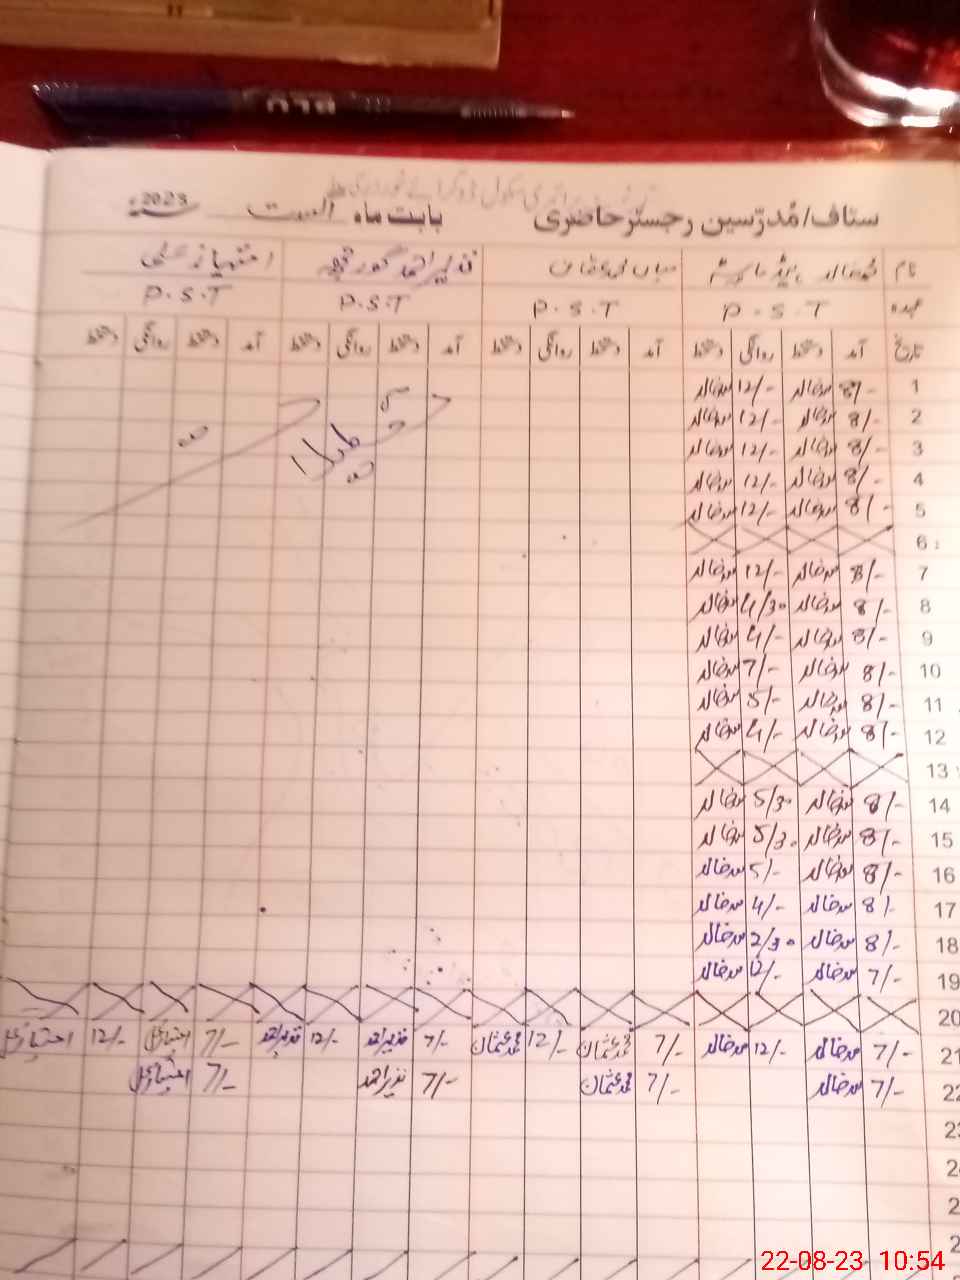 BLU
سٹاف/مُدرّسین رجسٹر حاضری بابت ماہ اگست 2023ء
نام محمد خالد ہیڈ ماسٹر میاں محمد عثمان نذیر احمد امتیاز علی
عہدہ P.S.T P.S.T P.S.T P.S.T
تاریخ آمد دستخط روانگی دستخط آمد دستخط روانگی دستخط آمد دستخط روانگی دستخط آمد دستخط روانگی دستخط
1 8/- محمد خالد 12/- محمد خالد
2 8/- محمد خالد 12/- محمد خالد
3 8/- محمد خالد 12/- محمد خالد
4 8/- محمد خالد 12/- محمد خالد
5 8/- محمد خالد 12/- محمد خالد
6
7 8/- محمد خالد 12/- محمد خالد
8 8/- محمد خالد 4/30 محمد خالد
9 8/- محمد خالد 4/- محمد خالد
10 8/- محمد خالد 7/- محمد خالد
11 8/- محمد خالد 5/- محمد خالد
12 8/- محمد خالد 4/- محمد خالد
13
14 8/- محمد خالد 5/30 محمد خالد
15 8/- محمد خالد 5/30 محمد خالد
16 8/- محمد خالد 5/- محمد خالد
17 8/- محمد خالد 4/- محمد خالد
18 8/- محمد خالد 2/30 محمد خالد
19 7/- محمد خالد 12/- محمد خالد
20
21 7/- محمد خالد 12/- محمد خالد 7/- محمد عثمان 12/- محمد عثمان 7/- نذیر احمد 12/- نذیر احمد 7/- امتیاز علی 12/- امتیاز علی
22 7/- محمد خالد 7/- محمد عثمان 7/- نذیر احمد 7/- امتیاز علی
23
24
22-08-23 10:54